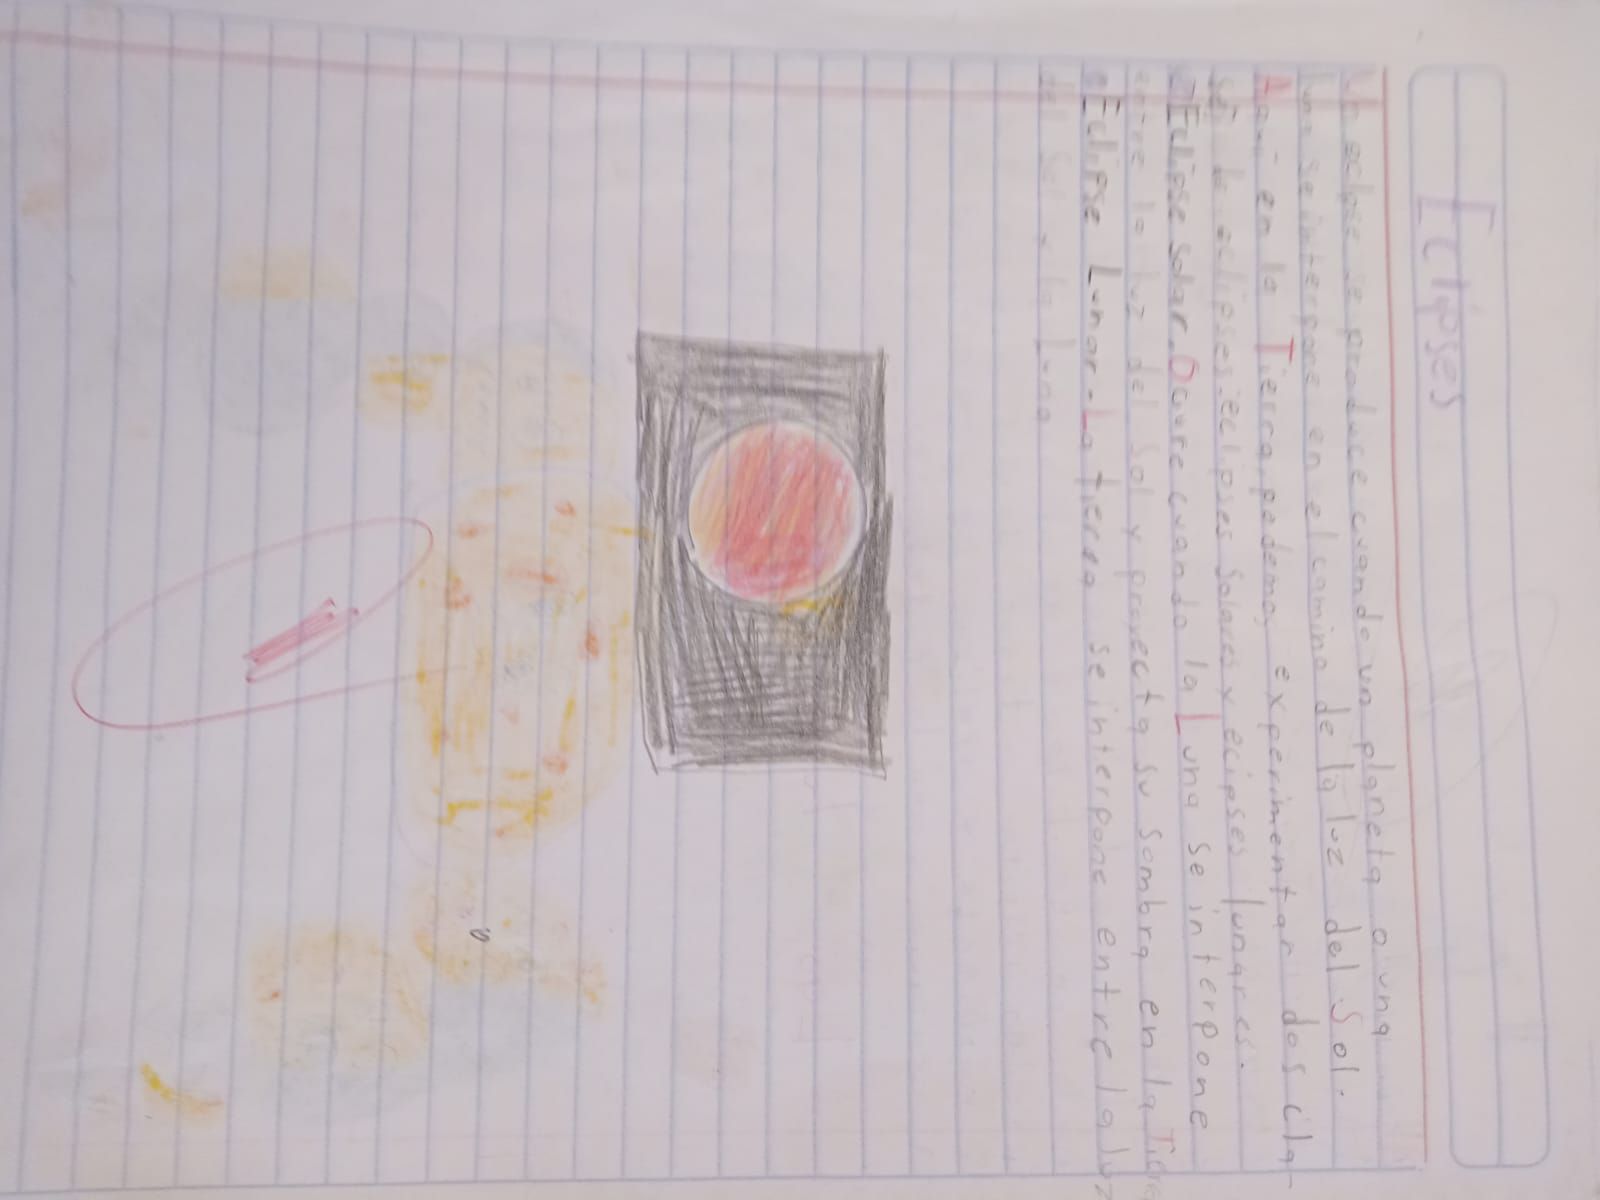 Eclipses
Un eclipse se produce cuando un planeta o una
luna se interpone en el camino de la luz del Sol.
Aquí en la Tierra podemos experimentar dos cla-
ses de eclipses: eclipses solares y eclipses lunares.
Eclipse solar. Ocurre cuando la Luna se interpone
entre la luz del Sol y proyecta su sombra en la Tierra
Eclipse Lunar. La tierra se interpone entre la luz
del Sol y la Luna